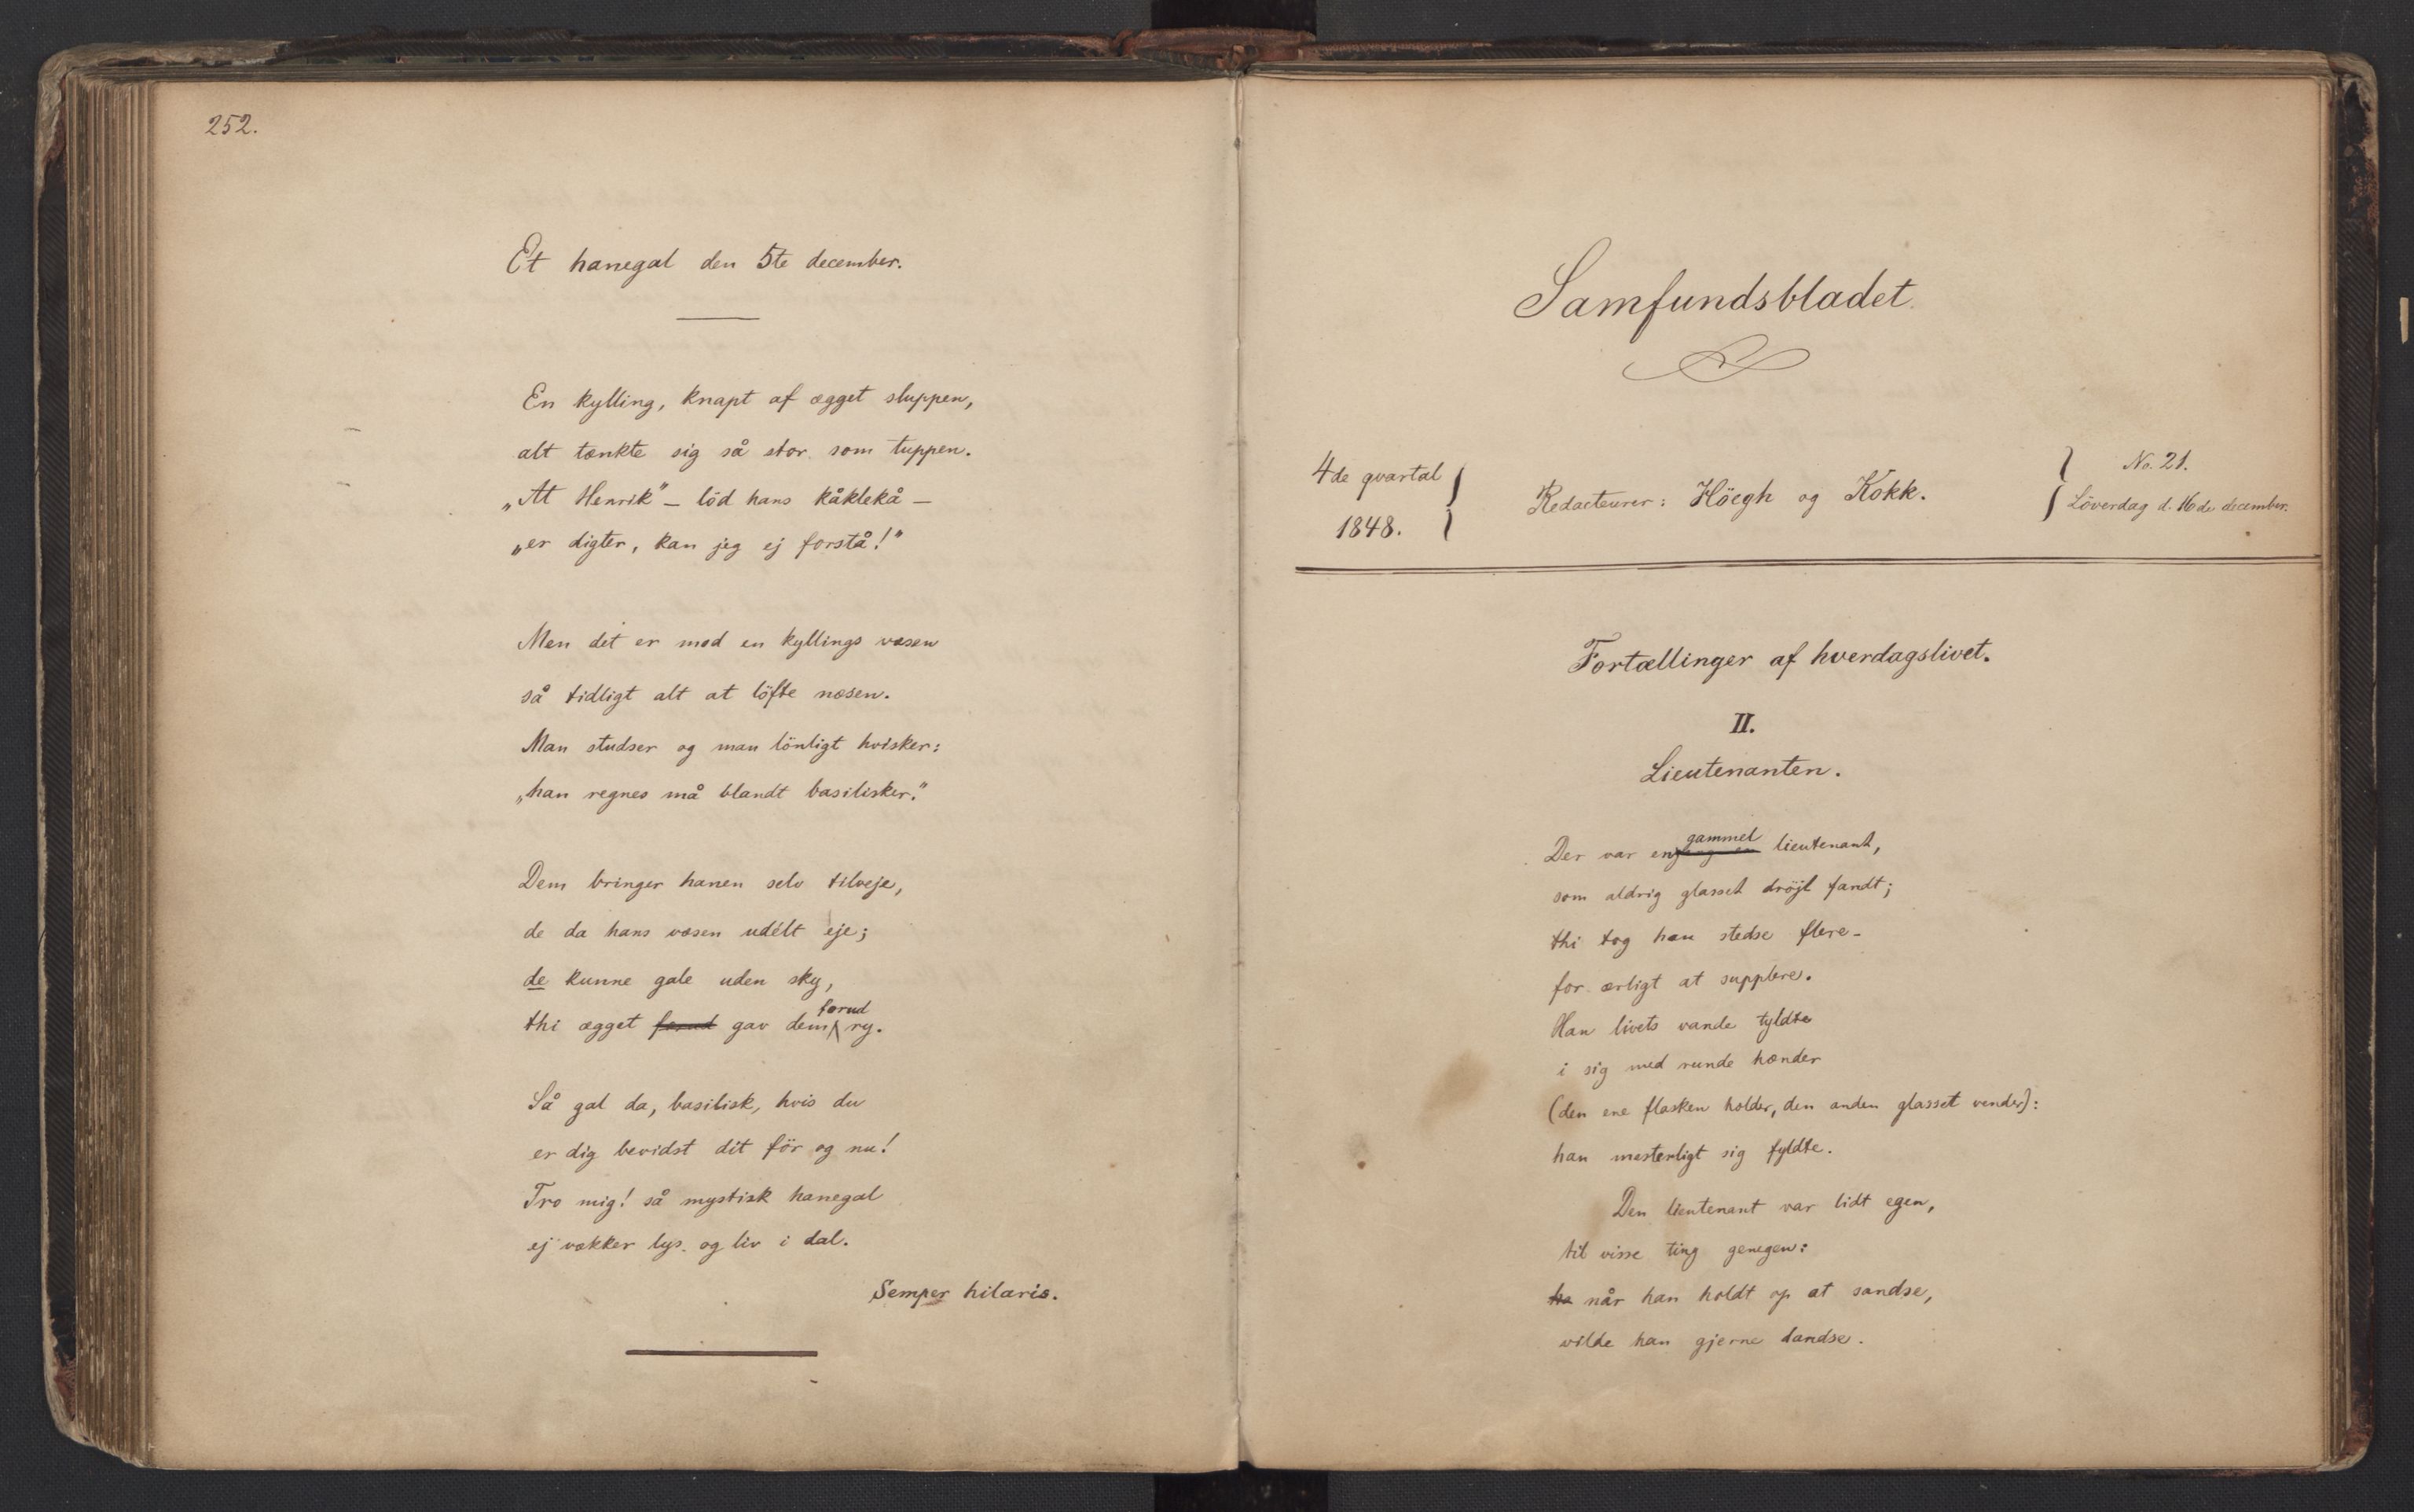 252.
Et hanegal den 5te december.
En kylling, knapt af ægget sluppen,
alt tænkte sig så stor som tuppen.
„At Henrik" – löd hans kåklekå –
„er digter, kan jeg ej forstå!"
Men det er mod en kyllings væsen
så tidligt alt at löfte næsen.
Man studser og man lönligt hvisker:
„han regnes må blandt basilisker."
Dem bringer hanen selv tilveje,
de da hans væsen udélt eje;
de kunne gale uden sky,
thi ægget forud gav dem forud ry.
Så gal da, basilisk, hvis du
er dig bevidst dit för og nu!
Tro mig! så mystisk hanegal
ej vækker lys og liv i dal.
Semper hilaris.
Samfundsbladet
4de qvartal
1848.
Redacteurer: Höegh og Kokk.
No. 21.
Löverdag d. 16de december.
Fortællinger af hverdagslivet.
II.
Lieutenanten.
Der var engang en gammel lieutenant,
som aldrig glasset dröjt fandt;
thi tog han stedse flere –
for ærligt at supplere.
Han livets vande tyldte
i sig med runde hænder
(den ene flasken holder, den anden glasset vender):
han mesterligt sig fyldte.
Den lieutenant var lidt egen,
til visse ting genegen:
ha når han holdt op at sandse,
vilde han gjerne dandse.